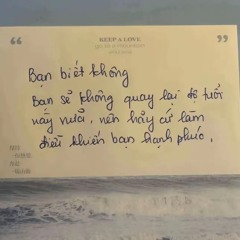 “ KEEP A LOVE ”
Bạn biết không
Bạn sẽ không quay lại độ tuổi
này nữa, nên hãy cứ làm
điều khiến bạn hạnh phúc.